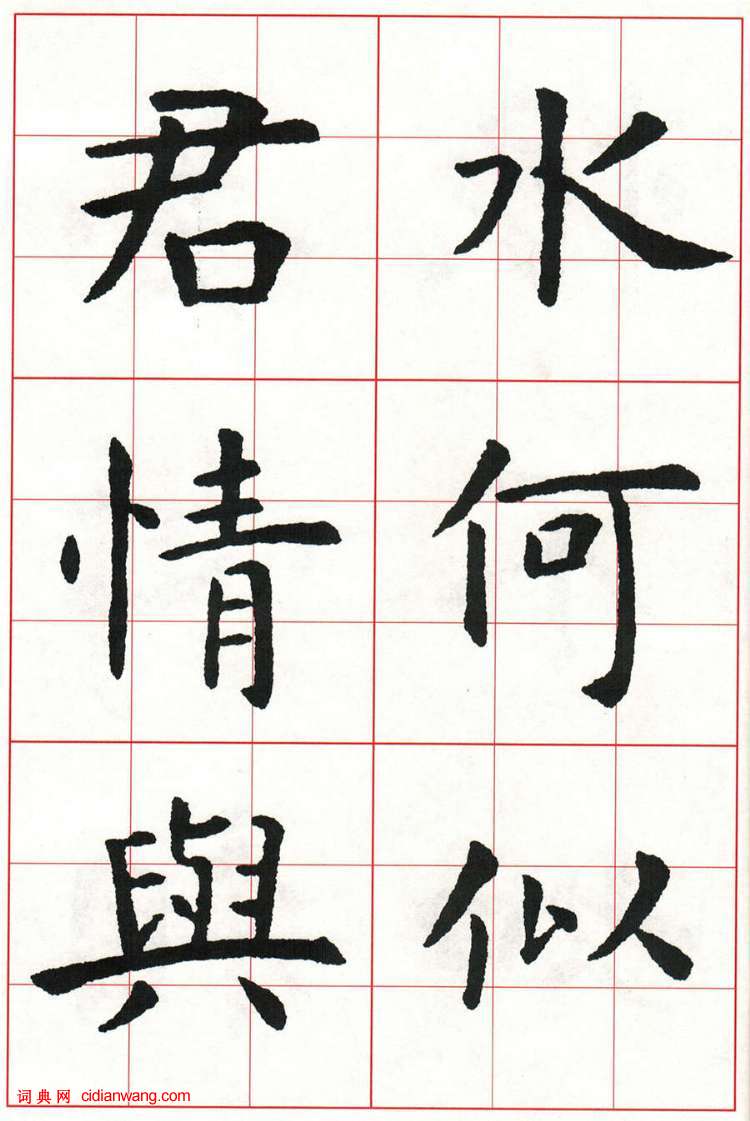 水何似
君情與
词典网 cidianwang.com